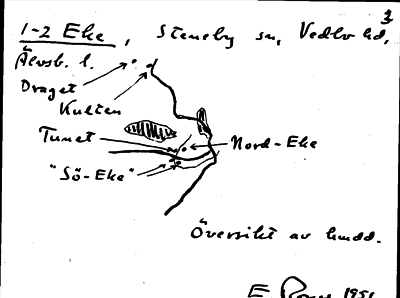 3
1-2 Eke, Steneby sn, Vedbo hd,
Älvsb. l.
Draget
Kulten
Tunet
Nord-Eke
"Sö-Eke"
Översikt av
E. 1951